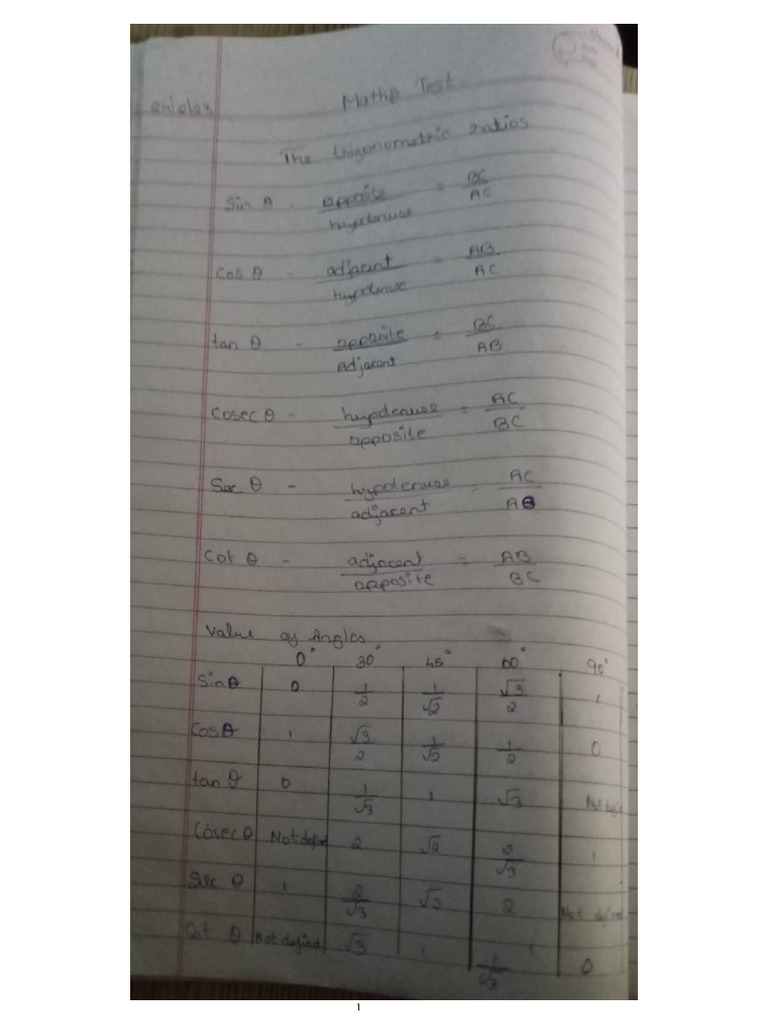 Maths Test
The trigonometric ratios
Sin θ - opposite/hypotenuse = BC/AC
Cos θ - adjacent/hypotenuse = AB/AC
tan θ - opposite/Adjacent = BC/AB
Cosec θ - hypotenuse/opposite = AC/BC
Sec θ - hypotenuse/adjacent = AC/AB
Cot θ - adjacent/opposite = AB/BC
Value of Angles
0° 30° 45° 60° 90°
Sin θ 0 1/2 1/√2 √3/2 1
Cos θ 1 √3/2 1/√2 1/2 0
tan θ 0 1/√3 1 √3 Not
Cosec θ Not 2 √2 2/√3 1
Sec θ 1 2/√3 √2 2 Not
Cot θ Not √3 1 1/√3 0
1